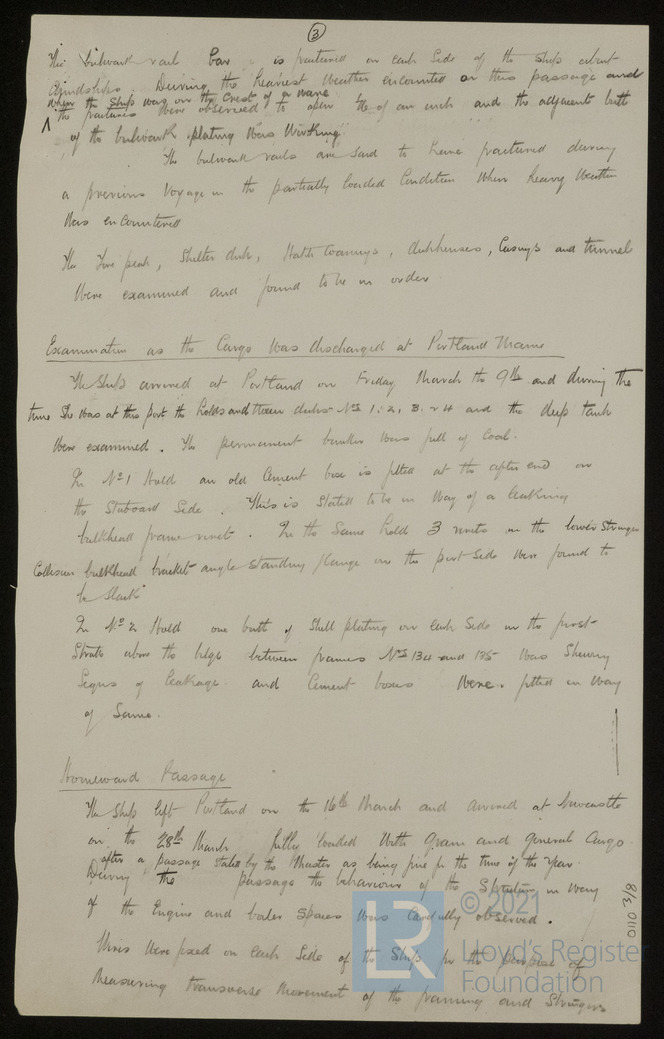 3
The bulwark rail bar is fractured on each side of the ship about
amidships. During the heaviest weather encountered on this passage and
when the ship was on the crest of a wave
the fractures were observed to open of an inch and the adjacent butt
of the bulwark plating was working
The bulwark rails are said to have fractured during
a previous voyage in the partially loaded condition when heavy weather
was encountered
The fore peak, shelter deck, hatch coamings, deckhouses, casings and tunnel
were examined and found to be in order
Examination as the Cargo was discharged at Portland Maine
The ship arrived at Portland on Friday March the 9th and during the
time she was at this port the holds and tween decks Nos 1. 2. 3. & 4 and the deep tank
were examined. The permanent bunker was full of coal.
In No 1 Hold an old cement box is fitted at the after end on
the starboard side. This is stated to be in way of a leaking
bulkhead frame rivet. In the same hold 3 rivets in the lower stringer
Collision bulkhead bracket angle standing flange on the port side were found to
be slack
In No 2 Hold one butt of shell plating on each side in the first
strake above the bilge between frames Nos 134 and 135 was shewing
signs of leakage and cement boxes were fitted in way
of same.
Homeward Passage
The ship left Portland on the 16th March and arrived at Newcastle
on the 28th March fully loaded with grain and general cargo
after a passage stated by the Master as being fine for the time of the year.
During the passage the behaviour of the structure in way
of the Engine and boiler spaces was carefully observed.
Wires were fixed on each side of the ship for the purpose of
measuring transverse movement of the framing and stringers
0110 3/8
© 2021
LR
Lloyd's Register
Foundation